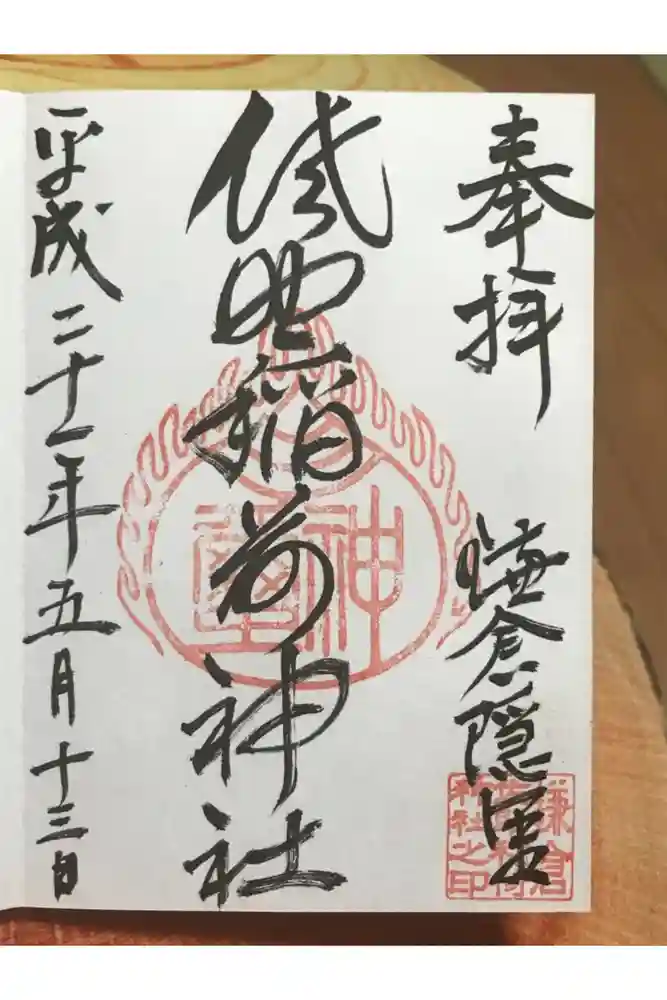 奉拝
鎌倉隠里
佐助稲荷神社
平成二十一年五月十三日
鎌倉
神社之印